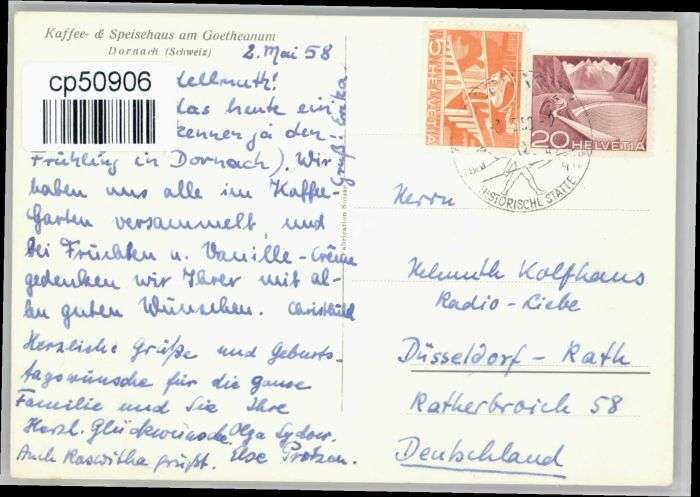 Kaffee- & Speisehaus am Goetheanum
Dornach (Schweiz)
2. Mai 58
cp50906
Hellmuth!
das heute ein
kennen ja den
Frühling in Dornach). Wir
haben uns alle im Kaffee-
Garten versammelt, und
bei Früchten u. Vanille-Crème
gedenken wir Ihrer mit al-
len guten Wünschen. Christhild
Herzliche Grüße und Geburts-
tagswünsche für die ganze
Familie und Sie Ihre
Herzl. Glückwünsche. Olga Sydow.
Auch Roswitha grüßt. Else Protzen.
Gruß Erika
HELVETIA 5
20 HELVETIA
HISTORISCHE STÄTTE
Herrn
Helmuth Kolfhaus
Radio-Liebe
Düsseldorf-Rath
Ratherbroich 58
Deutschland